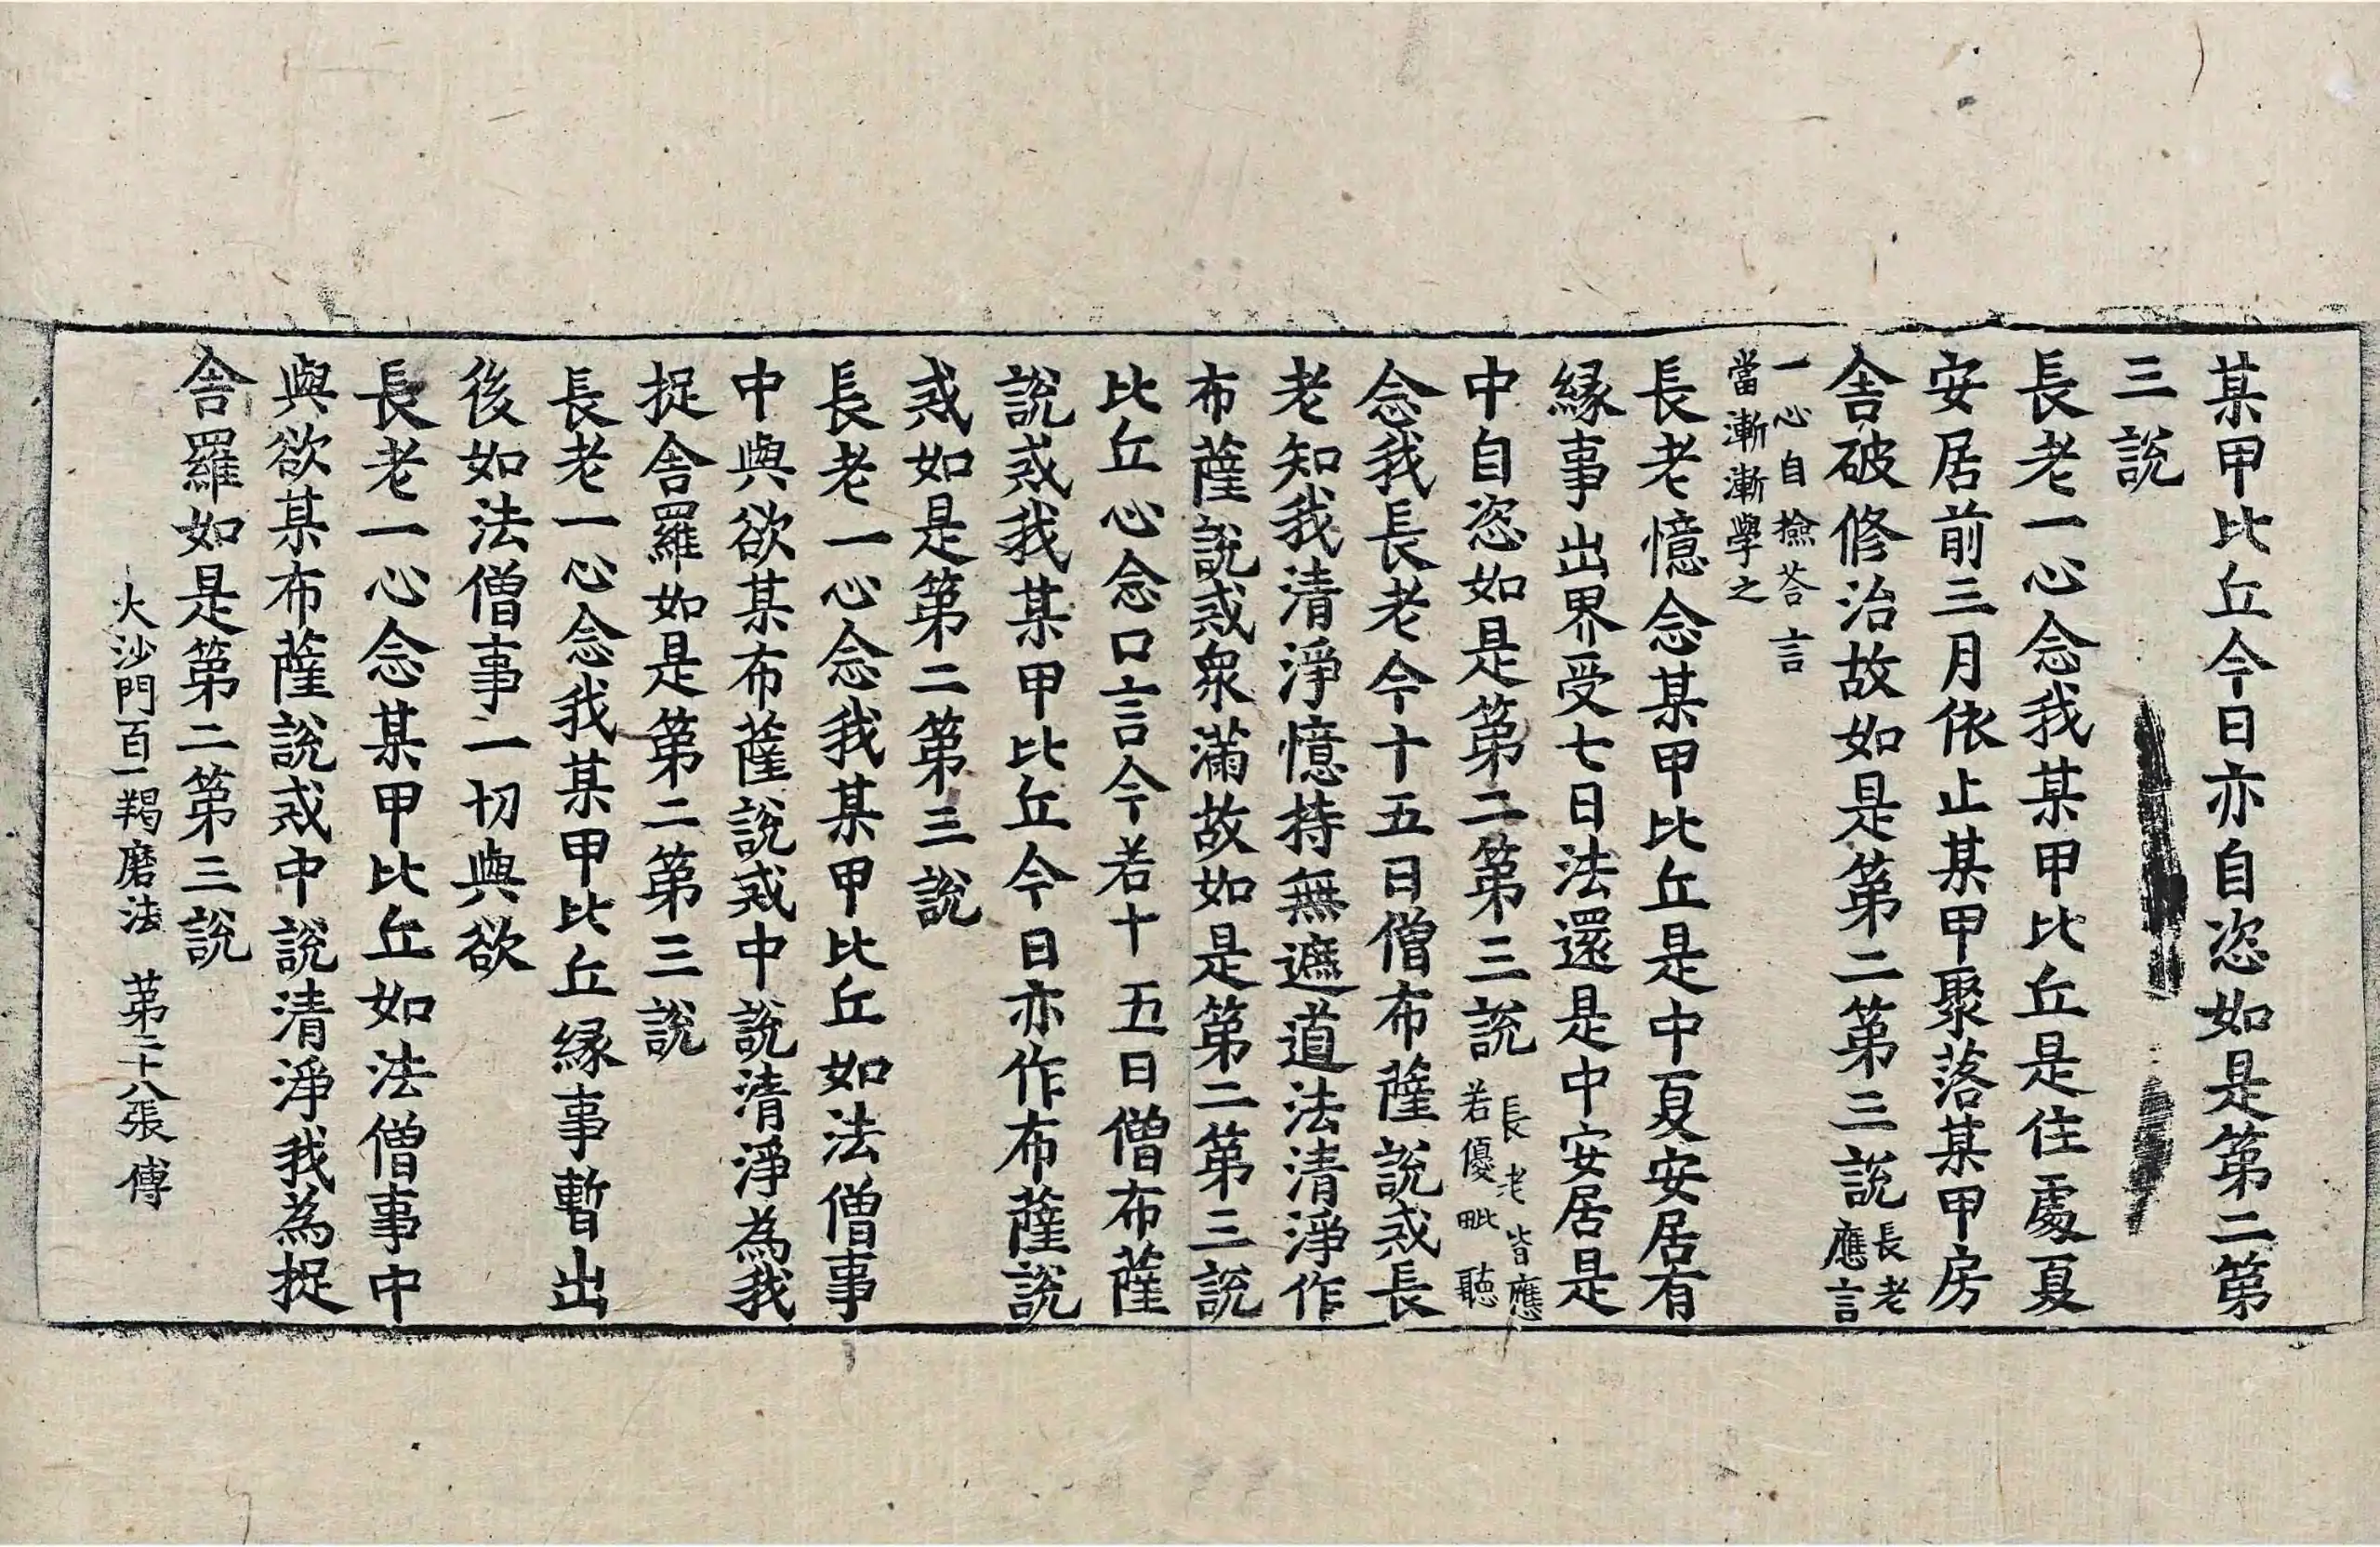 某甲比丘今日亦自恣如是第二第
三說
長老一心念我某甲比丘是住處夏
安居前三月依止某甲聚落某甲房
舍破修治故如是第二第三說長老
應言
一心自撿荅言
當漸漸學之
長老憶念某甲比丘是中夏安居有
緣事出界受七日法還是中安居是
中自恣如是第二第三說長老皆應
若優毗聽
念我長老今十五日僧布薩說戒長
老知我清淨憶持無遮道法清淨作
布薩說戒衆滿故如是第二第三說
比丘心念口言今若十五日僧布薩
說戒我某甲比丘今日亦作布薩說
戒如是第二第三說
長老一心念我某甲比丘如法僧事
中與欲某布薩說戒中說清淨為我
捉舍羅如是第二第三說
長老一心念我某甲比丘緣事暫出
後如法僧事一切與欲
長老一心念某甲比丘如法僧事中
與欲某布薩說戒中說清淨我為捉
舍羅如是第二第三說
大沙門百一羯磨法 第二十八張 傅